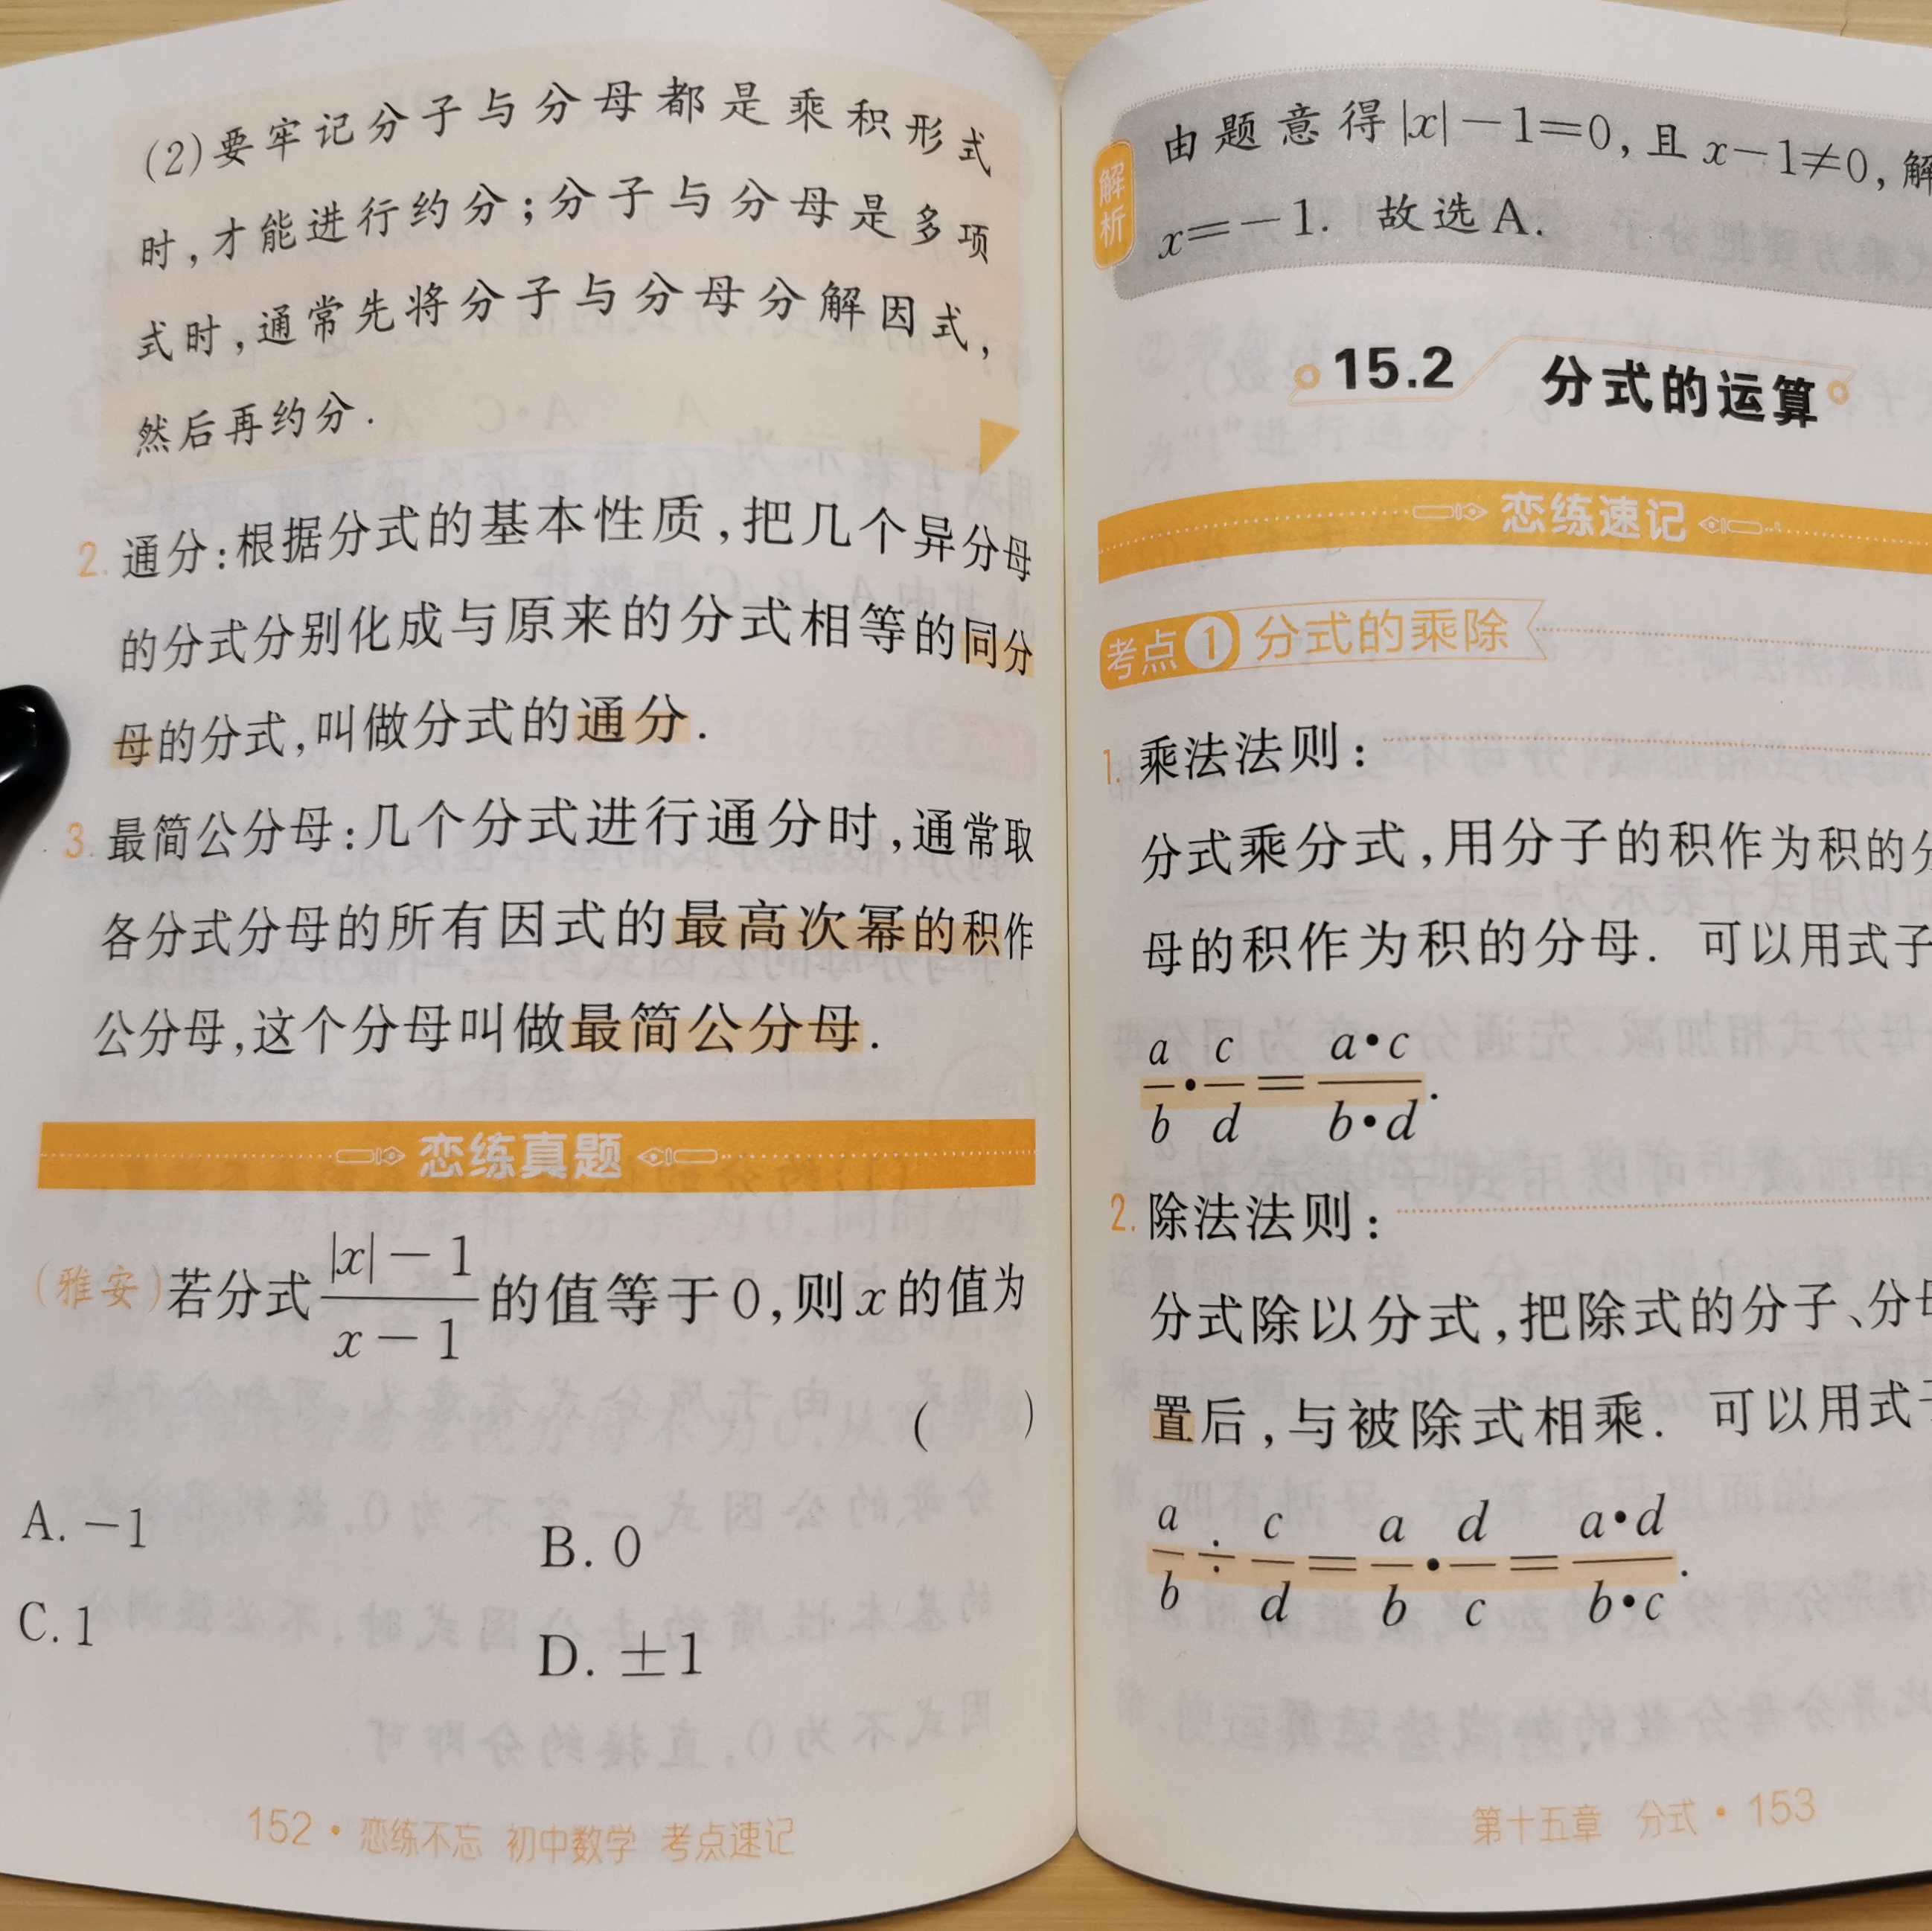 (2)要牢记分子与分母都是乘积形式
时,才能进行约分;分子与分母是多项
式时,通常先将分子与分母分解因式,
然后再约分.
2. 通分:根据分式的基本性质,把几个异分母
的分式分别化成与原来的分式相等的同分
母的分式,叫做分式的通分.
3. 最简公分母:几个分式进行通分时,通常取
各分式分母的所有因式的最高次幂的积作
公分母,这个分母叫做最简公分母.
恋练真题
(雅安)若分式 (|x|-1)/(x-1) 的值等于0,则x的值为
( )
A. -1 B. 0
C. 1 D. ±1
152·恋练不忘 初中数学 考点速记
解析
由题意得|x|-1=0,且x-1≠0,解
x=-1. 故选A.
15.2 分式的运算
恋练速记
考点1 分式的乘除
1. 乘法法则:
分式乘分式,用分子的积作为积的分
母的积作为积的分母. 可以用式子
a/b·c/d=(a·c)/(b·d).
2. 除法法则:
分式除以分式,把除式的分子、分母
置后,与被除式相乘. 可以用式子
a/b÷c/d=a/b·d/c=(a·d)/(b·c).
第十五章 分式·153